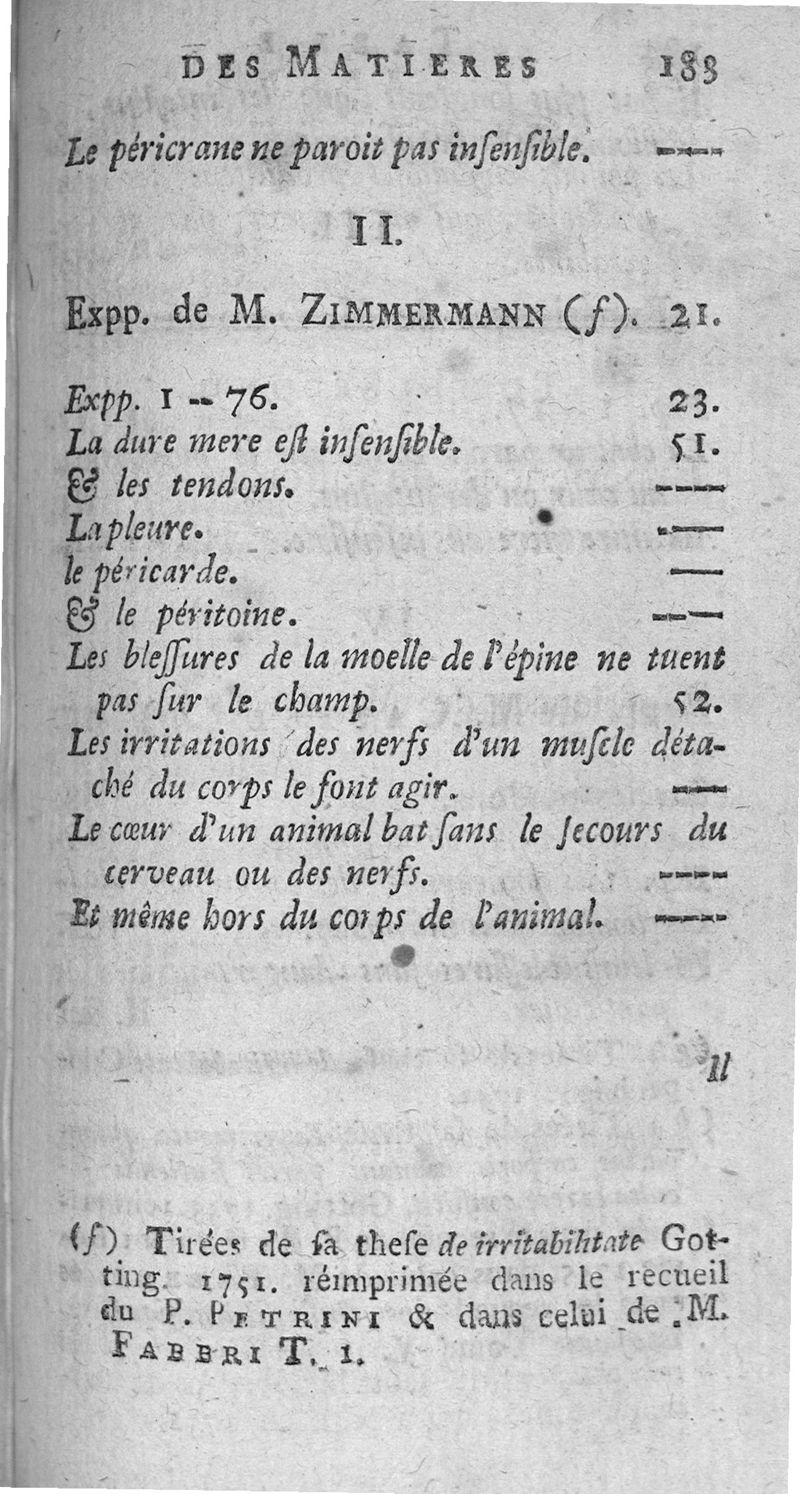 DES MATIERES 183
Le péricrane ne paroit pas inſenſible. ----
II.
Expp. de M. ZIMMERMANN (f). 21.
Expp. 1 -- 76. 23.
La dure mere eſt inſenſible. 51.
& les tendons. ----
La pleure. ----
le péricarde. ----
& le péritoine. ----
Les bleſſures de la moelle de l'épine ne tuent
pas ſur le champ. 52.
Les irritations des nerfs d'un muſcle déta-
ché du corps le font agir. ----
Le cœur d'un animal bat ſans le ſecours du
cerveau ou des nerfs. ----
Et même hors du corps de l'animal. ----
Il
(f) Tirées de ſa theſe de irritabilitate Got-
ting. 1751. réimprimée dans le recueil
du P. PETRINI & dans celui de M.
FABBRI T. 1.